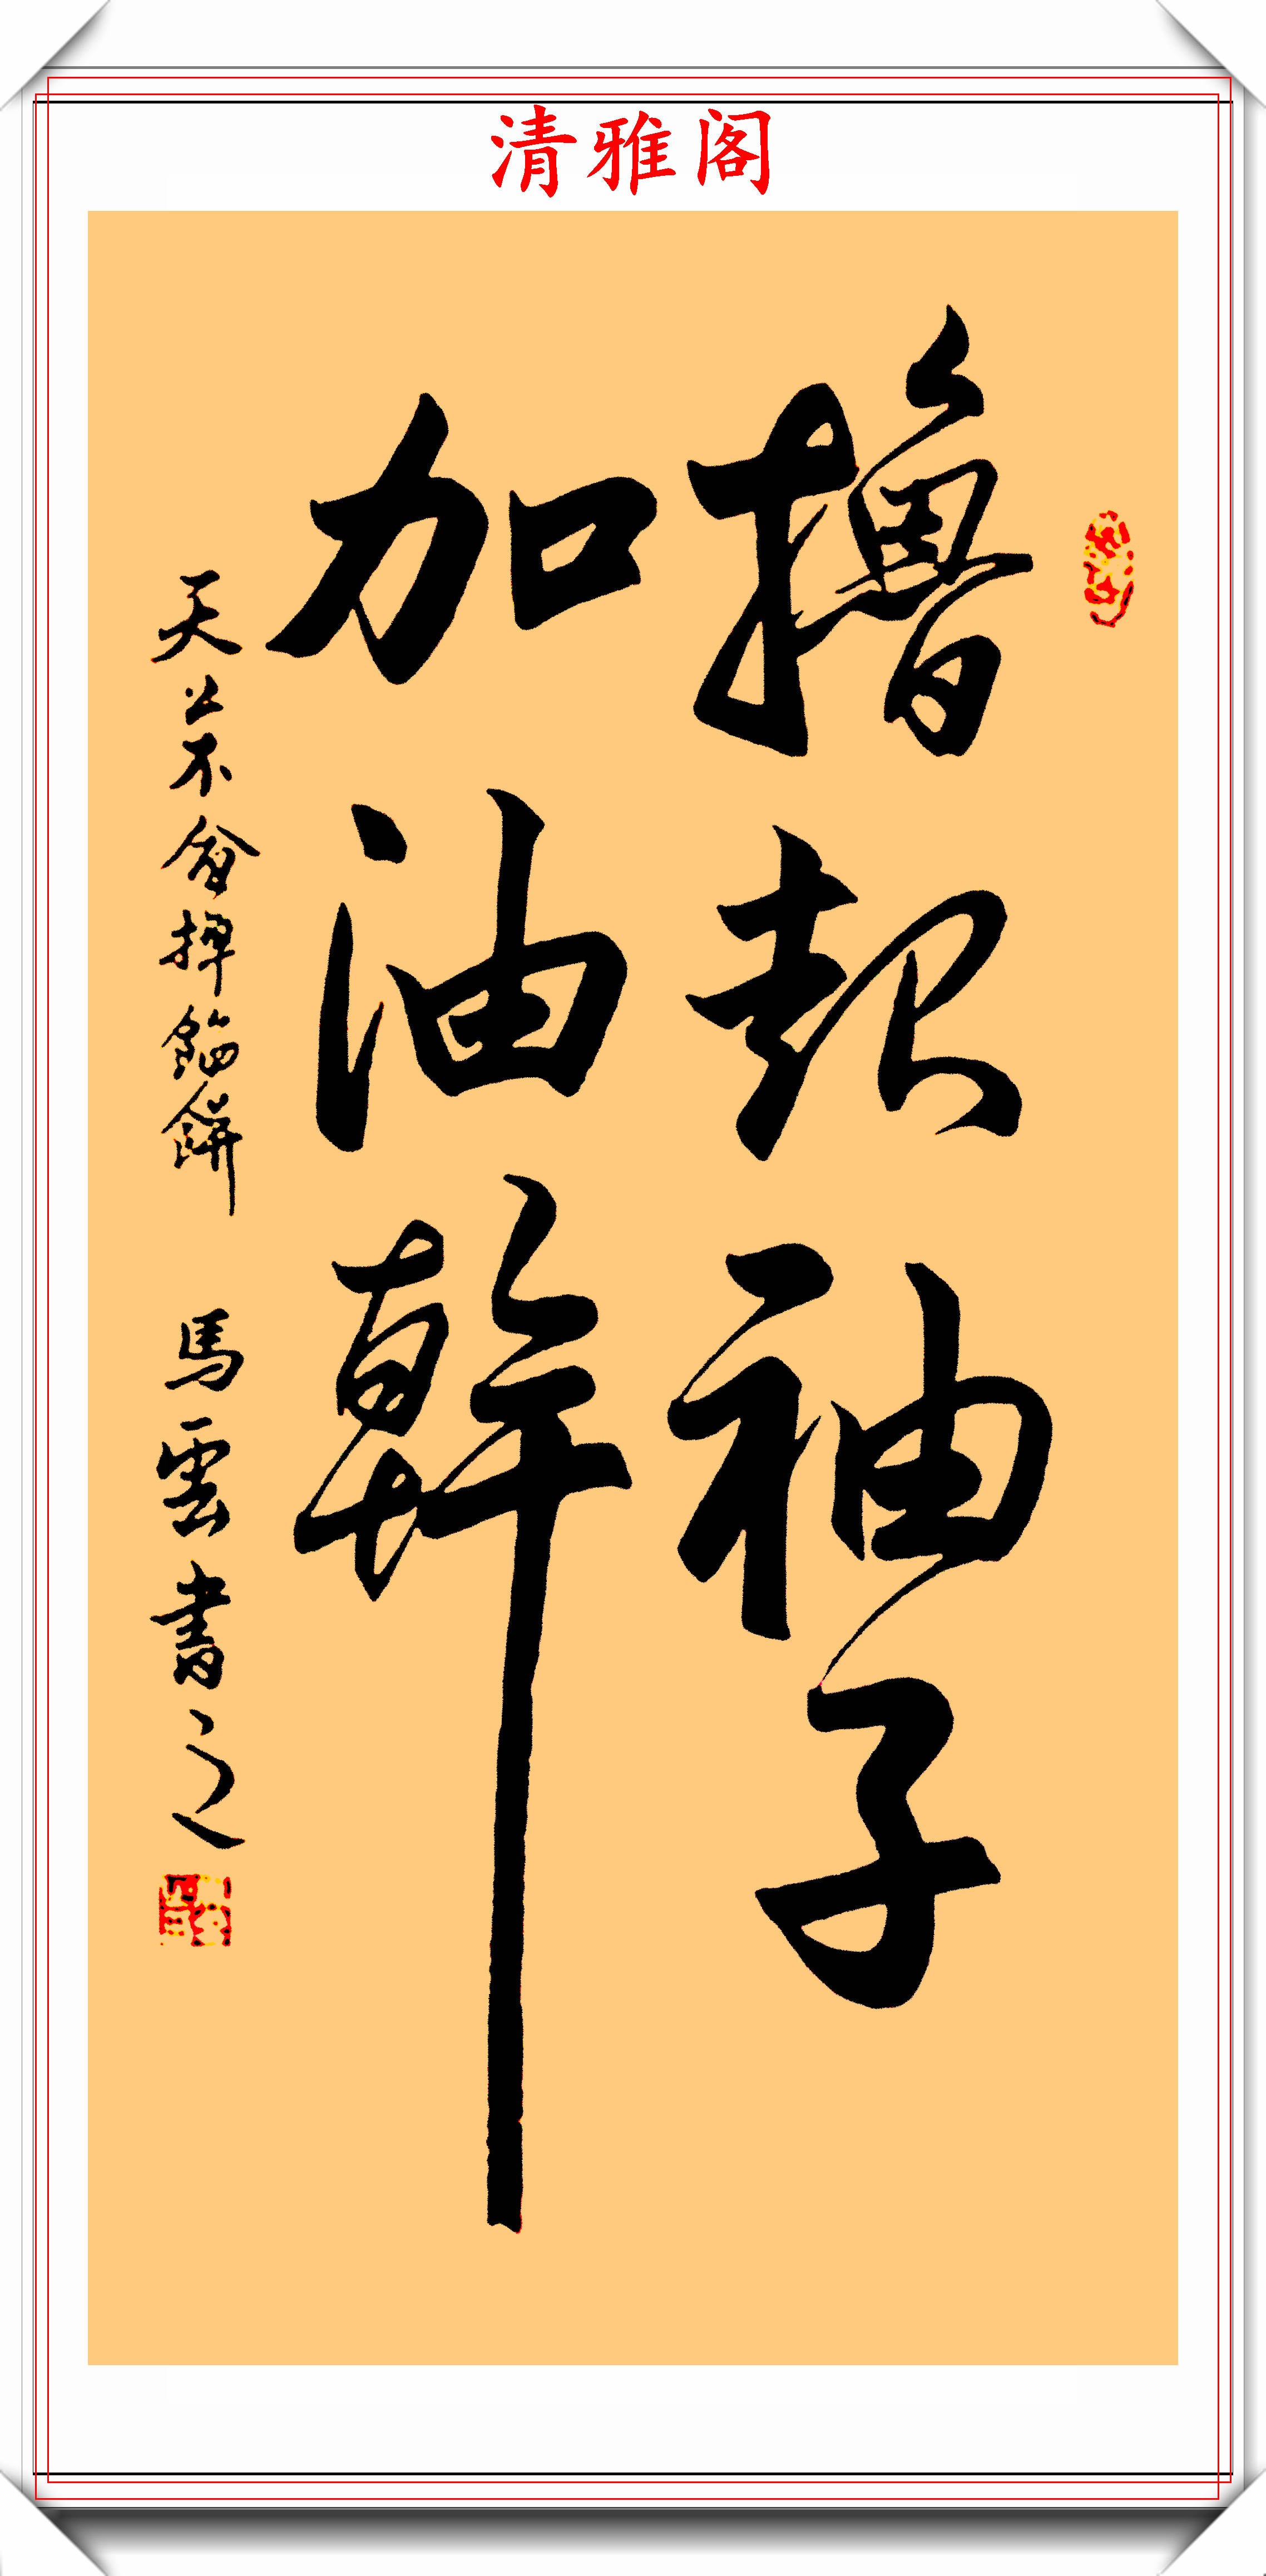 清雅阁
撸起袖子
加油幹
天上不會掉餡餅 馬雲書之